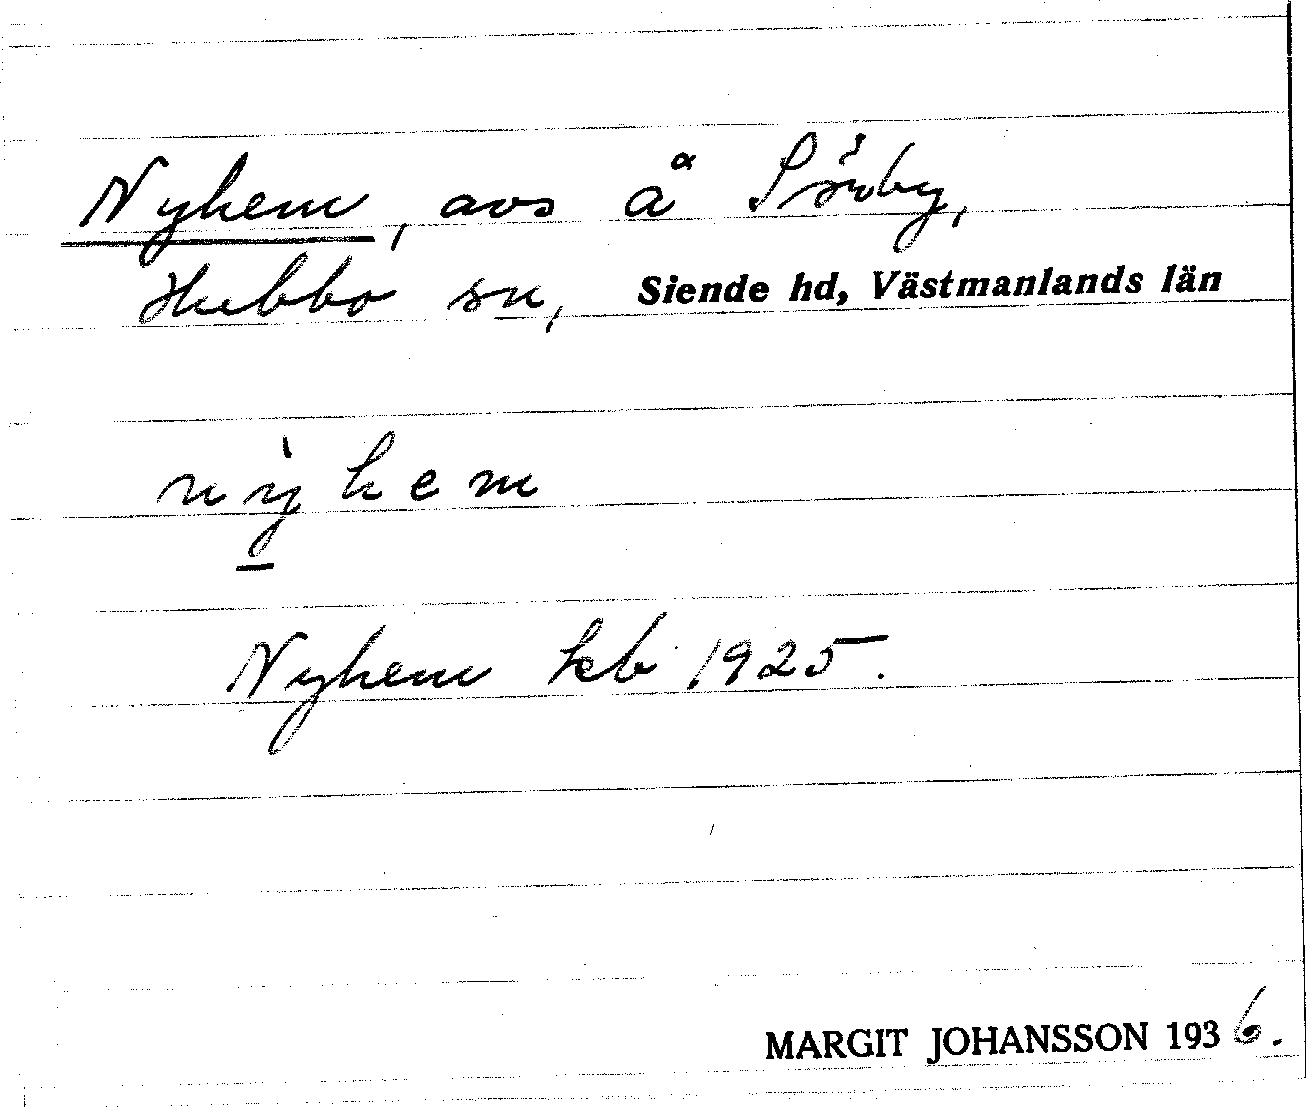 Nyhem, avs å Sörby,
Hubbo sn, Siende hd, Västmanlands län
nỳhem
Nyhem kb 1925.
MARGIT JOHANSSON 1936.